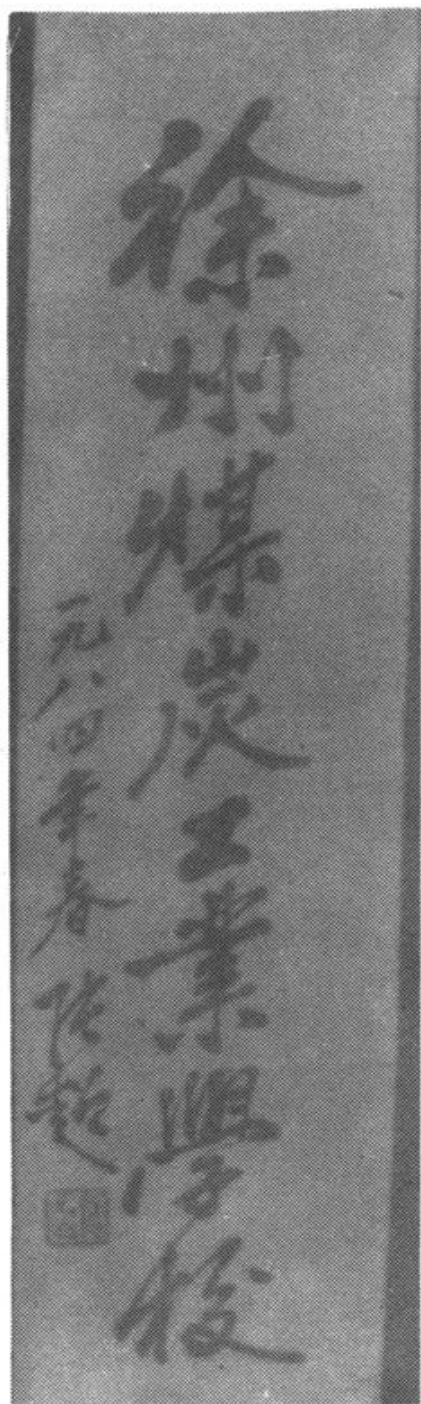 徐州煤炭工業學校
一九八四年春